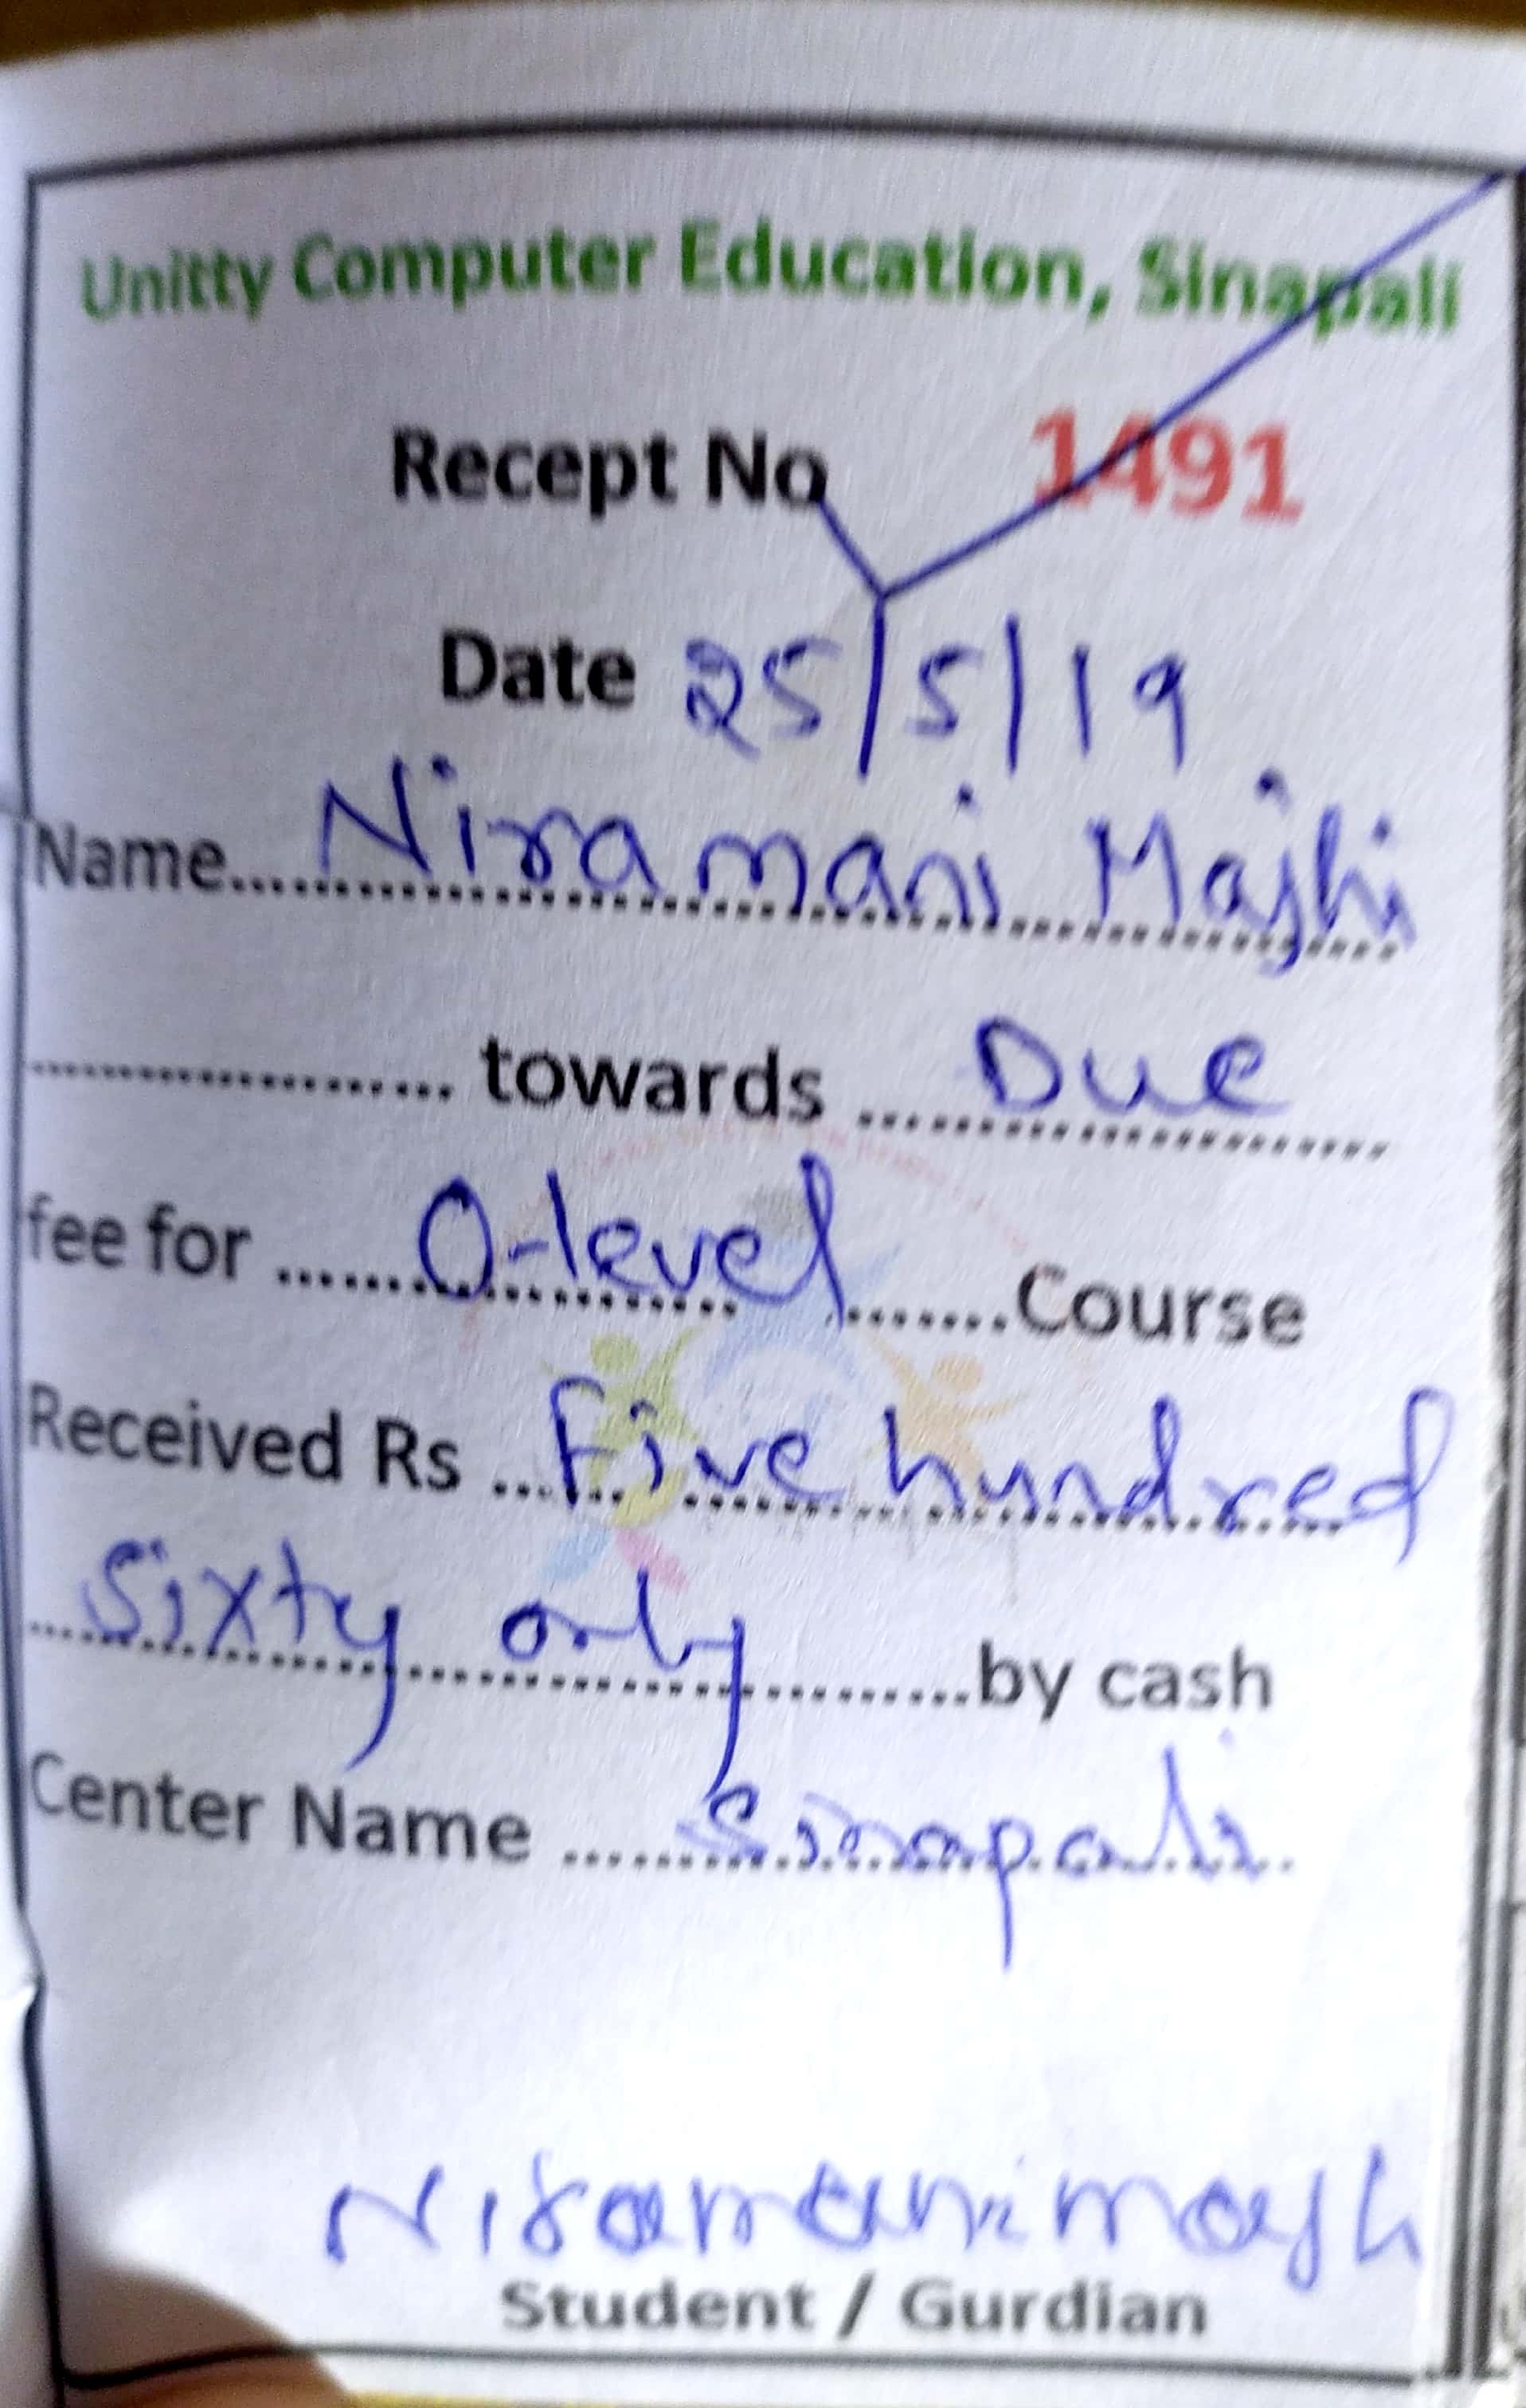 Unitty Computer Education, Sinapali
Recept No 1491
Date 25/5/19
Name....Niramani Majhi
.................... towards ....Due....
fee for ....O-level........Course
Received Rs ...Five hundred
...Sixty only............by cash
Center Name ......Sinapali.
Niramanimajh
Student / Gurdian